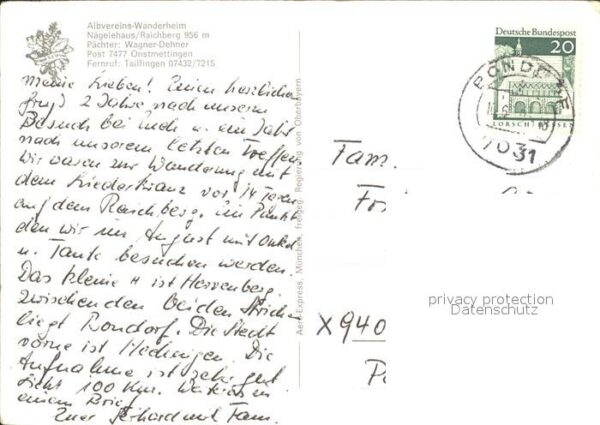 Albvereins-Wanderheim
Nägelehaus/Raichberg 956 m
Pächter: Wagner-Dehner
Post 7477 Onstmettingen
Fernruf: Tailfingen 07432/7215
Meine Lieben! Einen herzlichen
Gruß 2 Jahre nach unserem
Besuch bei Euch u. ein Jahr
nach unserem letzten Treffen
Wir waren zur Wanderung mit
dem Liederkranz vor 14 Tagen
auf dem Raichberg. Im
den wir im August mit Onkel
u. Tante besuchen werden.
Das kleine H ist Herrenberg.
Zwischen den beiden Strichen
liegt Bondorf. Die Stadt
vorne ist Hechingen. Die
Aufnahme ist sehr gut
Sicht 100 Km. Weiteres in
einem Brief
Euer Gerhard mit Fam.
Aero-Express, München, freigeg. Regierung von Oberbayern
Deutsche Bundespost
20
LORSCH/HESSEN
7031
Fam.
X940
privacy protection
Datenschutz